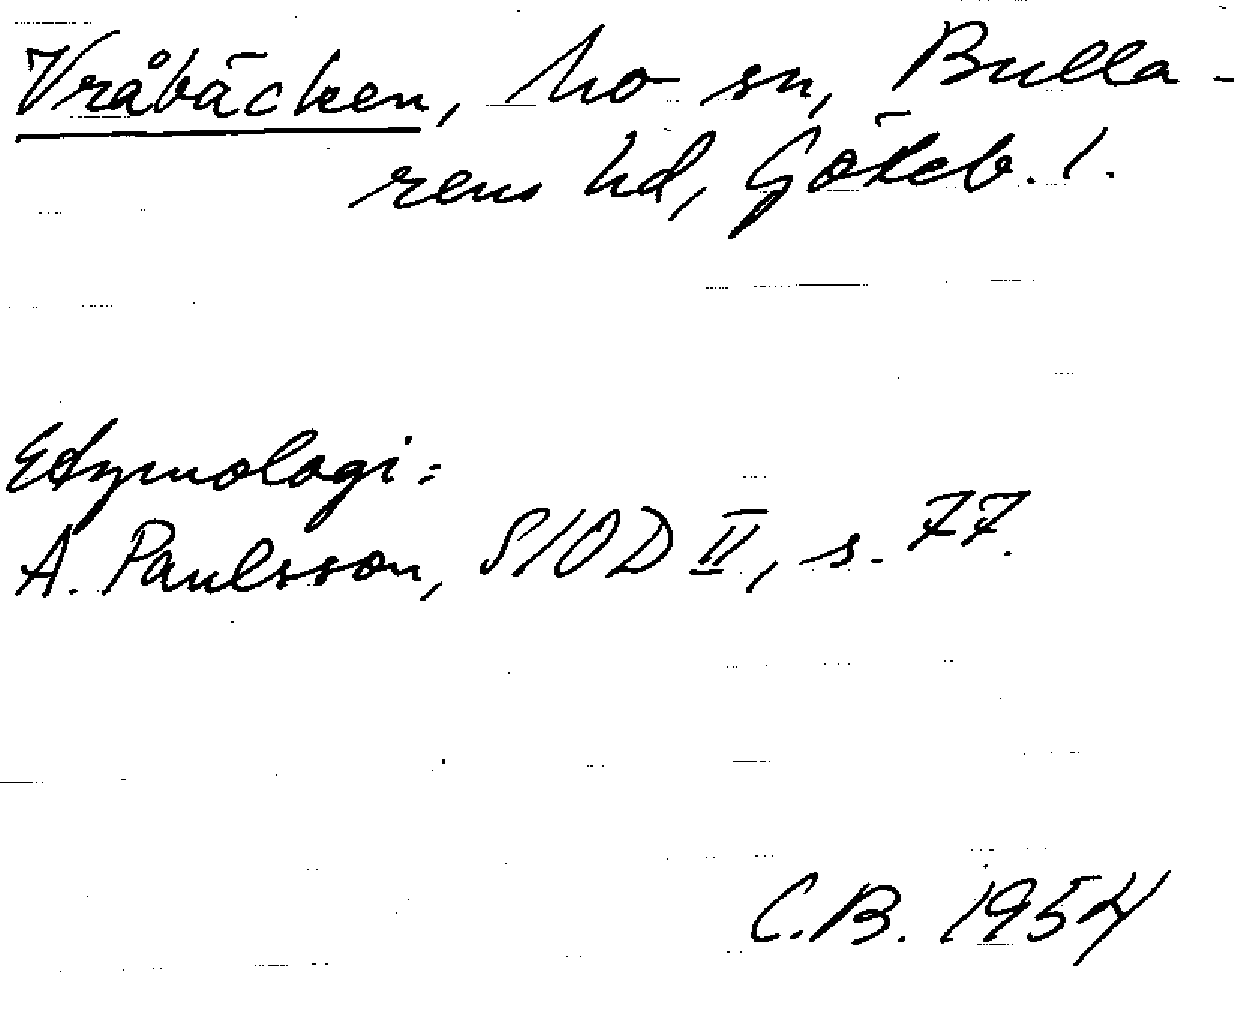 Vråbäcken, Mo sn, Bulla-
rens hd, Göteb. l.
Etymologi:
A. Paulsson, SIOD II, s. 77.
C.B. 1954